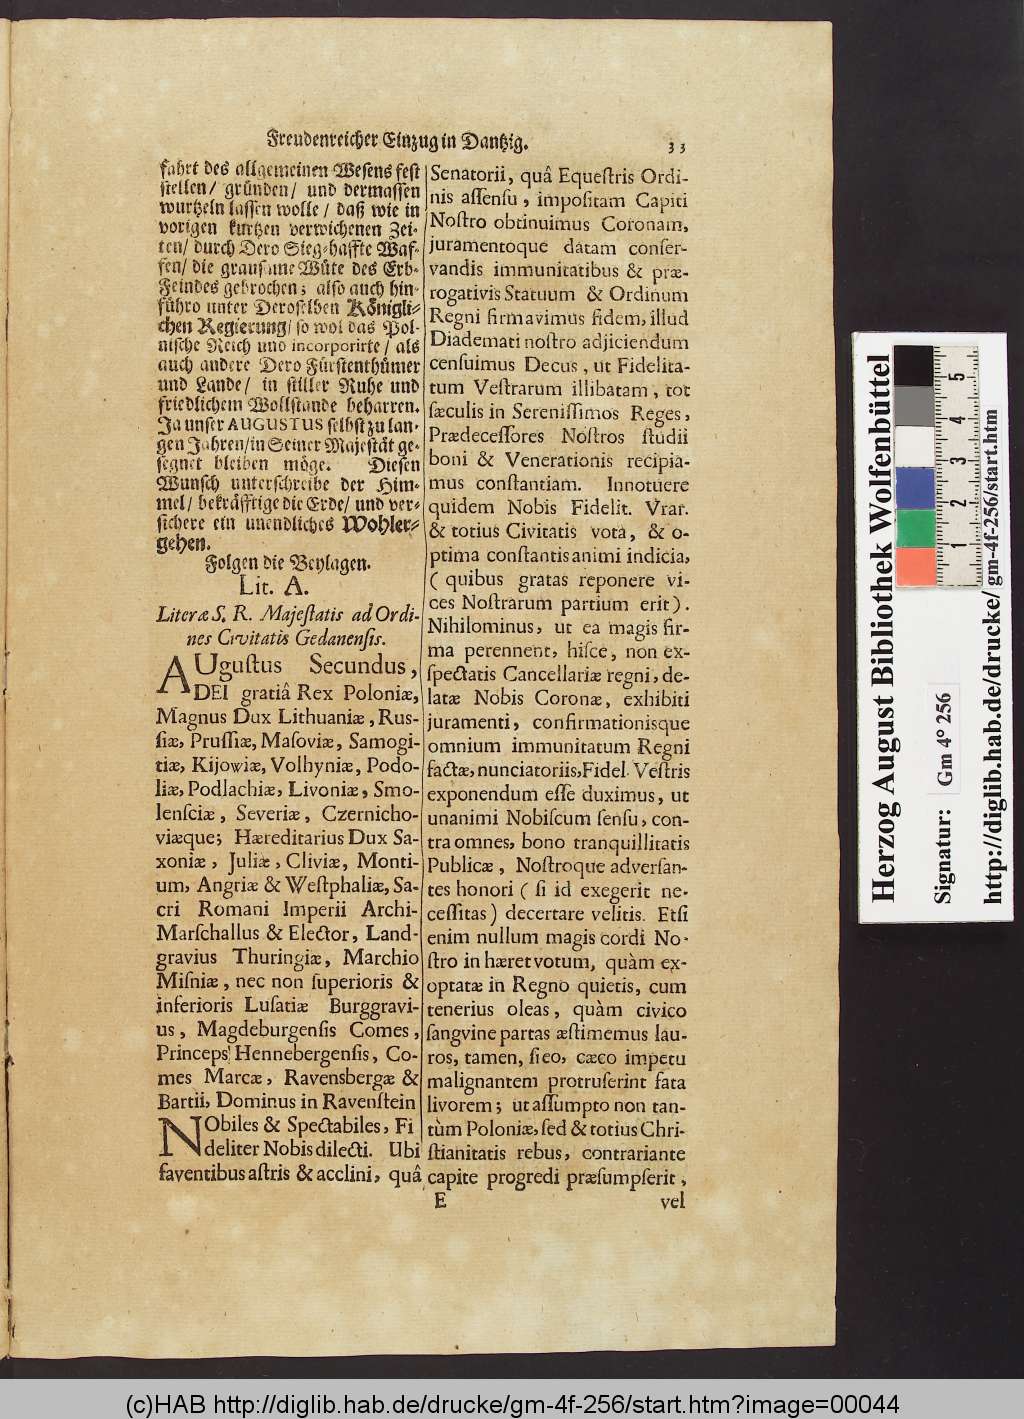 Freudenreicher Einzug in Dantzig. 33
fahrt des allgemeinen Wesens fest
stellen/ gründen/ und dermassen
wurtzeln lassen wolle/ daß wie in
vorigen kurtzen verwichenen Zei-
ten/ durch Dero Sieg-haffte Waf-
fen/ die grausame Wüte des Erb-
Feindes gebrochen; also auch hin-
führo unter Deroselben Königli-
chen Regierung/ so wol das Pol-
nische Reich und incorporirte/ als
auch andere Dero Fürstenthümer
und Lande/ in stiller Ruhe und
friedlichem Wollstande beharren.
Ja unser AUGUSTUS selbst zu lan-
gen Jahren/ in Seiner Majestät ge-
segnet bleiben möge. Diesen
Wunsch unterschreibe der Him-
mel/ bekräfftige die Erde/ und ver-
sichere ein unendliches Wohler-
gehen.
Folgen die Beylagen.
Lit. A.
Literæ S. R. Majeſtatis ad Ordi-
nes Civitatis Gedanenſis.
AUguſtus Secundus,
DEI gratiâ Rex Poloniæ,
Magnus Dux Lithuaniæ, Ruſ-
ſiæ, Pruſſiæ, Maſoviæ, Samogi-
tiæ, Kijowiæ, Volhyniæ, Podo-
liæ, Podlachiæ, Livoniæ, Smo-
lenſciæ, Severiæ, Czernicho-
viæque; Hæreditarius Dux Sa-
xoniæ, Juliæ, Cliviæ, Monti-
um, Angriæ & Weſtphaliæ, Sa-
cri Romani Imperii Archi-
Marſchallus & Elector, Land-
gravius Thuringiæ, Marchio
Miſniæ, nec non ſuperioris &
inferioris Luſatiæ Burggravi-
us, Magdeburgenſis Comes,
Princeps Hennebergenſis, Co-
mes Marcæ, Ravensbergæ &
Bartii, Dominus in Ravenſtein
NObiles & Spectabiles, Fi
deliter Nobis dilecti. Ubi
faventibus aſtris & acclini, quâ
Senatorii, quâ Equeſtris Ordi-
nis aſſenſu, impoſitam Capiti
Noſtro obtinuimus Coronam,
juramentoque datam conſer-
vandis immunitatibus & præ-
rogativis Statuum & Ordinum
Regni firmavimus fidem, illud
Diademati noſtro adjiciendum
cenſuimus Decus, ut Fidelita-
tum Veſtrarum illibatam, tot
ſæculis in Sereniſſimos Reges,
Prædeceſſores Noſtros ſtudii
boni & Venerationis recipia-
mus conſtantiam. Innotuere
quidem Nobis Fidelit. Vrar.
& totius Civitatis vota, & o-
ptima conſtantis animi indicia,
( quibus gratas reponere vi-
ces Noſtrarum partium erit ).
Nihilominus, ut ea magis fir-
ma perennent, hiſce, non ex-
ſpectatis Cancellariæ regni, de-
latæ Nobis Coronæ, exhibiti
juramenti, confirmationisque
omnium immunitatum Regni
factæ, nunciatoriis, Fidel. Veſtris
exponendum eſſe duximus, ut
unanimi Nobiſcum ſenſu, con-
tra omnes, bono tranquillitatis
Publicæ, Noſtroque adverſan-
tes honori ( ſi id exegerit ne-
ceſſitas ) decertare velitis. Etſi
enim nullum magis cordi No-
ſtro in hæret votum, quàm ex-
optatæ in Regno quietis, cum
tenerius oleas, quàm civico
ſangvine partas æſtimemus lau-
ros, tamen, ſi eo, cæco impetu
malignantem protruſerint fata
livorem; ut aſſumpto non tan-
tùm Poloniæ, ſed & totius Chri-
ſtianitatis rebus, contrariante
capite progredi præſumpſerit,
E vel
Herzog August Bibliothek Wolfenbüttel
Signatur: Gm 4° 256
http://diglib.hab.de/drucke/gm-4f-256/start.htm
1 2 3 4 5
(c)HAB http://diglib.hab.de/drucke/gm-4f-256/start.htm?image=00044